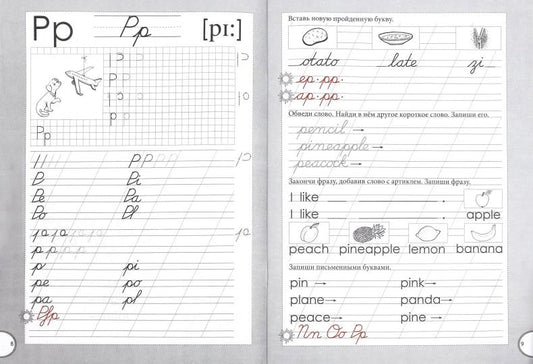 Pp Pp [pi:]
Pp
P P
Pi
Pe Pa
Po Pl
p pi
pe po
pa pl
Pp
8
Вставь новую пройденную букву.
otato late zi
ep·pp·
ap·pp·
Обведи слово. Найди в нём другое короткое слово. Запиши его.
pencil →
pineapple →
peacock →
Закончи фразу, добавив слово с артиклем. Запиши фразу.
I like
I like apple
peach pineapple lemon banana
Запиши письменными буквами.
pin → pink →
plane → panda →
peace → pine →
Nn Oo Pp
9